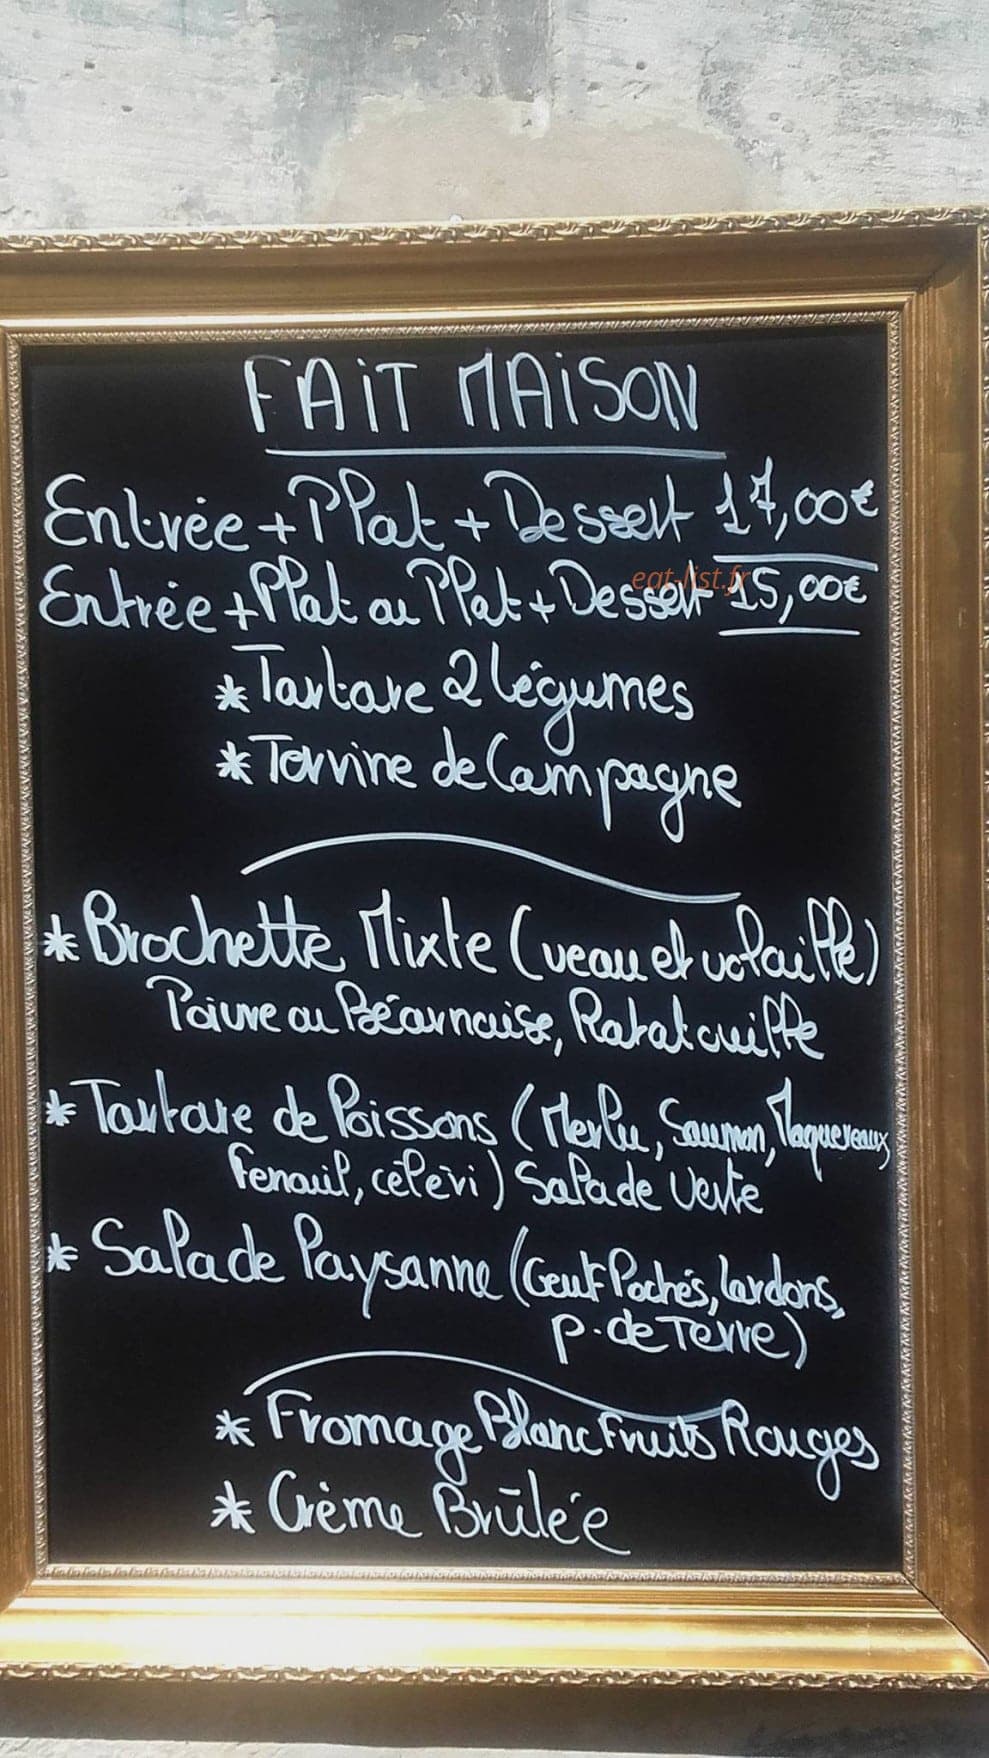 FAiT MAiSON
Entrée + Plat + Dessert 17,00€
eat-list.fr
Entrée + Plat ou Plat + Dessert 15,00€
* Tartare 2 légumes
* Terrine de Campagne
* Brochette Mixte (veau et volaille)
Poivre ou Béarnaise, Ratatouille
* Tartare de Poissons (Merlu, Saumon, Maquereaux,
Fenouil, céleri) Salade Verte
* Salade Paysanne (Oeuf Pochés, lardons,
p. de Terre)
* Fromage Blanc Fruits Rouges
* Crème Brûlée